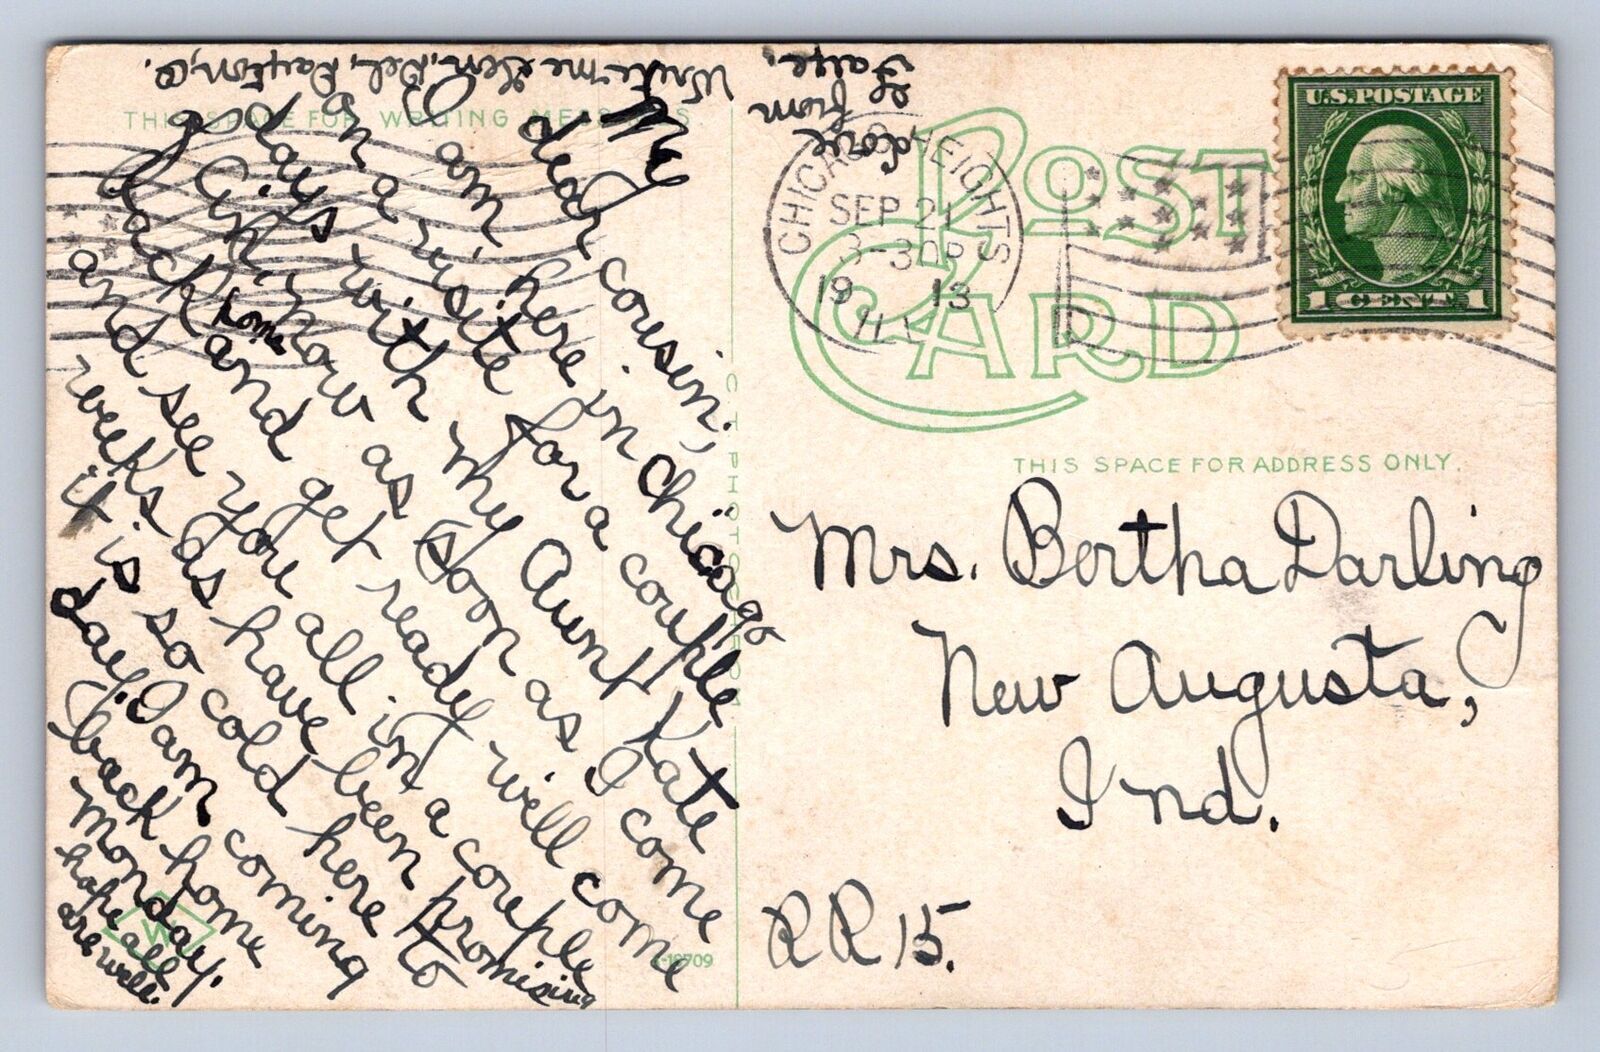 Write me Gen. Del. Dayton, O.
Love
to from
Faye.
THIS SPACE FOR WRITING MESSAGES
My
dear cousin;
I am here in Chicago
on a visite for a couple
days with my Aunt Kate
Ask now as soon as I come
back home and get ready will come
and see you all in a couple
weeks as have been promising
it is so cold here to
day. I am coming
back home
Monday.
hope all
are well.
POST CARD
CHICAGO HEIGHTS
SEP 21
3-30P
19 13
ILL
U.S. POSTAGE
1 CENT 1
C. T. PHOTOCHROM
THIS SPACE FOR ADDRESS ONLY.
Mrs. Bertha Darling
New Augusta,
Ind.
RR 15.
W